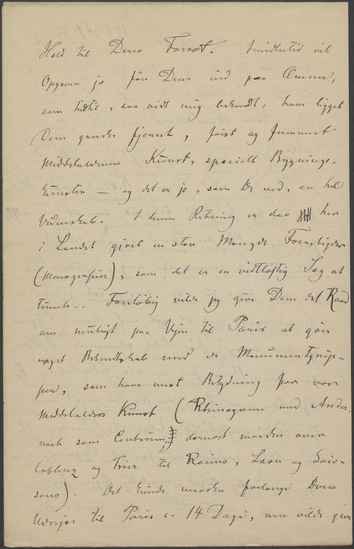 Held til Deres Forsæt. Imidlertid vil
Opgaven jo føre Dem ind paa Emner,
som hidtil, saa vidt mig bekendt, have ligget
Dem ganske fjernt, først og fremmest
Middelalderens Kunst, speciell Bygnings-
kunsten — og det er jo, som De ved, en hel
Videnskab. I denne Retning er der her
i Landet gjort en stor Mængde
(Monografier), som det er en vidtløftig Sag at
Foreløbig vilde jeg give Dem det Raad
om muligt paa Vejen til Paris at gøre
noget Bekendtskab med de Monumentgrup-
per, som have mest Betydning for vor
Middelalders Kunst (Rhinegnene med Andernach
som Centrum, dernæst maaske over
Coblenz og Trier til Reims, Laon og Sois-
sons). Det kunde maaske forlænge Deres
Udrejse til Paris c. 14 Dage, men vilde give